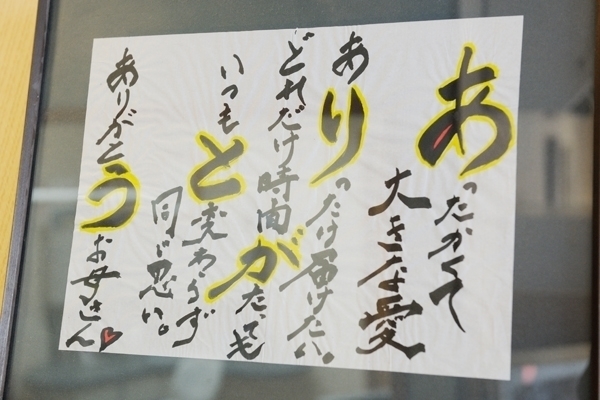 あったかくて
大きな愛
ありったけ届けたい。
どれだけ時間がたっても
いつもと変わらず
同じ思い。
ありがとうお母さん